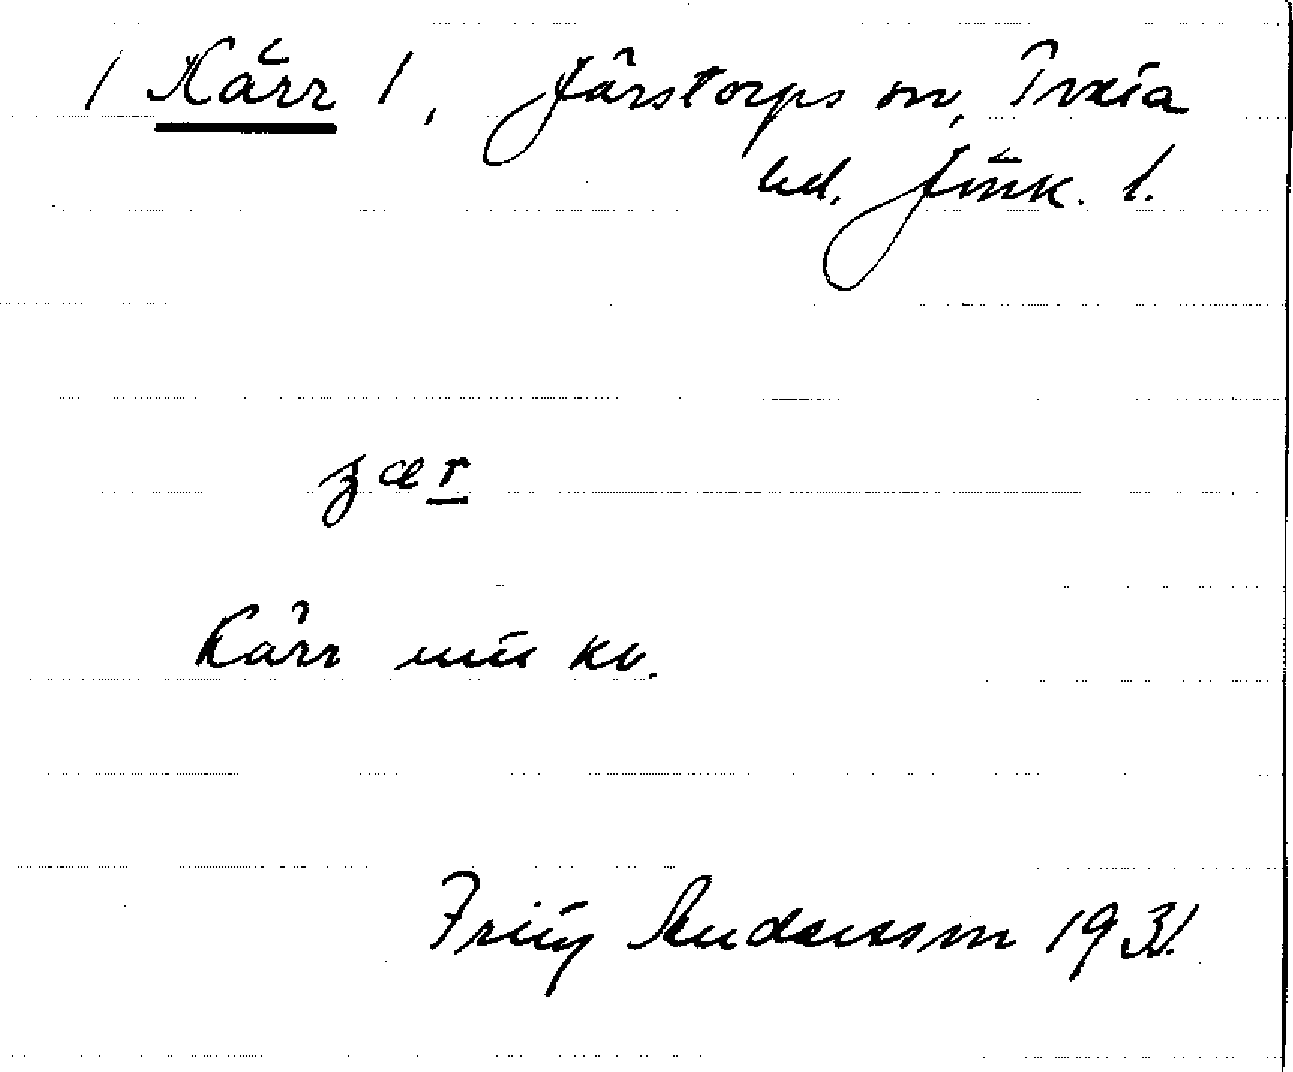 / Kärr /, Järstorps sn, Tveta
hd. Jönk. l.
ʒær
Kärr kv.
Fritz Andersson 1931.